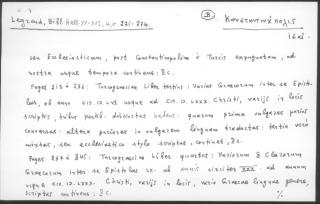 Legrand, Bibl. Hell. XV-XVI, II, σ. 271-274.
B
Κωνσταντινόπολις
16 αἰ.
seu Ecclesiasticum, post Constantinopolim à Turcis expugnatam, ad
nostra usque tempora continens: &c.
Pages 213 à 276: Turcograeciae liber tertius: Varias Graecorum inter se Epistolas,
ab anno usque ad Christi, varijs in locis
scriptis, tribus distinctas habens: quarum prima vulgares purius
conversas: altera purioris in vulgarem linguam traductas: tertia vero
mixtas, seu ecclesiastico stylo scriptas, continet, &c.
Pages 277 à 345: Turcograeciae Liber quartus: Variorum & Clarorum
Graecorum inter se Epistolas ab annis circiter XXX ad annum
usque Christi, varijs in locis, vario Graecae linguae genere,
scriptas continens: &c.